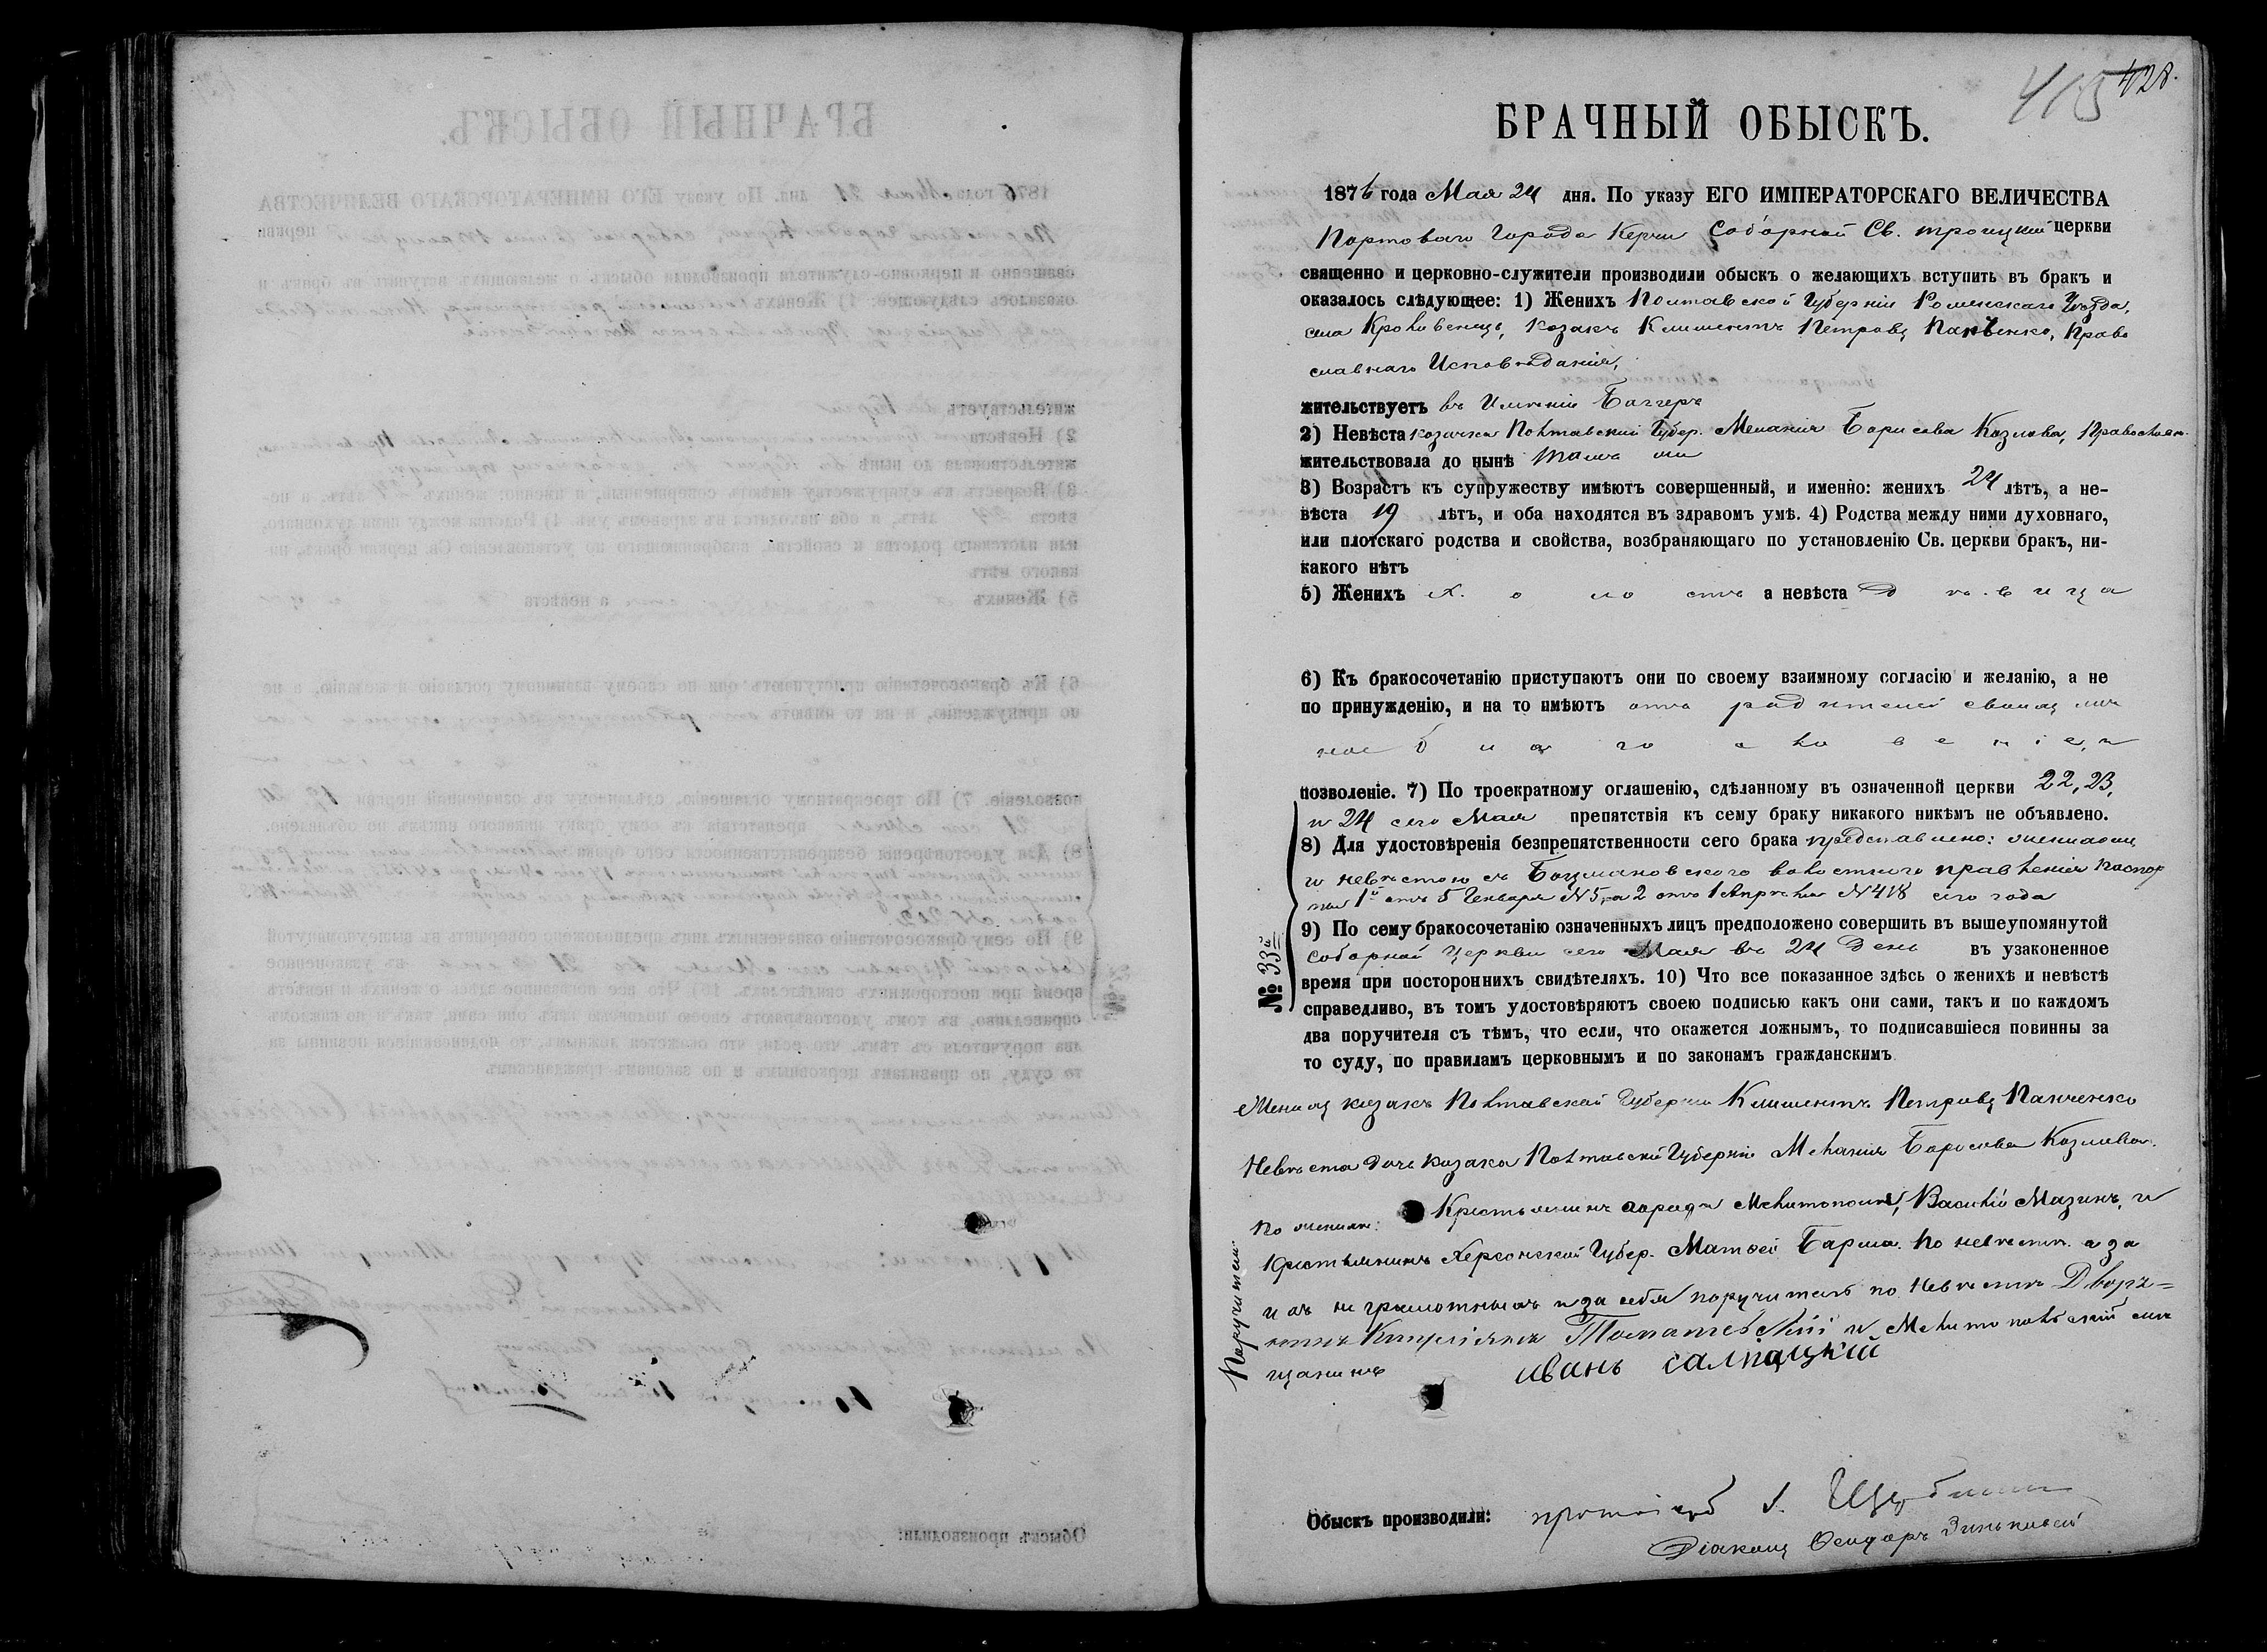 428.
415
БРАЧНЫЙ ОБЫСКЪ.
1876 года Мая 24 дня. По указу ЕГО ИМПЕРАТОРСКАГО ВЕЛИЧЕСТВА
Портоваго Города Керчи Соборной Св. Троицкой церкви
священно и церковно-служители производили обыскъ о желающихъ вступить въ бракъ и
оказалось слѣдующее: 1) Женихъ Полтавской Губерніи Роменскаго Уѣзда,
села Кроливенць, козакъ Климентъ Петровъ Панченко, Право
славнаго Исповѣданія,
жительствуетъ въ Имѣніи Баггеръ
2) Невѣста козачка Полтавской Губер. Меланія Борисова Козлова, Православн.
жительствовала до нынѣ тамъ же
3) Возрастъ къ супружеству имѣютъ совершенный, и именно: женихъ 24 лѣтъ, а не-
вѣста 19 лѣтъ, и оба находятся въ здравомъ умѣ. 4) Родства между ними духовнаго,
или плотскаго родства и свойства, возбраняющаго по установленію Св. церкви бракъ, ни-
какого нѣтъ
5) Женихъ холостъ а невѣста дѣвица
6) Къ бракосочетанію приступаютъ они по своему взаимному согласію и желанію, а не
по принужденію, и на то имѣютъ отъ родителей своихъ лич
ное благословеніе и
позволеніе. 7) По троекратному оглашенію, сдѣланному въ означенной церкви 22, 23,
и 24 сего Мая препятствія къ сему браку никакого никѣмъ не объявлено.
8) Для удостовѣренія безпрепятственности сего брака представлено: женихомъ
и невѣстою съ Боцмановского волостного правленія паспор
ты 1й отъ 5 Генваря № 5, а 2 отъ 1 Апрѣля № 418 сего года
9) По сему бракосочетанію означенныхъ лицъ предположено совершить въ вышеупомянутой
соборной Церкви сего Мая въ 24 день въ узаконенное
время при постороннихъ свидѣтеляхъ. 10) Что все показанное здѣсь о женихѣ и невѣстѣ
справедливо, въ томъ удостовѣряютъ своею подписью какъ они сами, такъ и по каждомъ
два поручителя съ тѣмъ, что если, что окажется ложнымъ, то подписавшіеся повинны за
то суду, по правиламъ церковнымъ и по законамъ гражданскимъ
№ 33й
Женихъ козакъ Полтавской Губерніи Климентъ Петровъ Панченко
Невѣста дочь козака Полтавской Губерніи Меланія Борисова Козлова.
Поручители:
по женихѣ: Крестьянинъ города Мелитополя, Василій Мазинъ, и
Крестьянинъ Херсонской Губер. Матвей Барма. По невѣстѣ. а за
ихъ неграмотныхъ и за себя поручитель по невѣстѣ Дворя=
нинъ Кипріянъ и Мелитопольскій мѣ
щанинъ иванъ салпацкій
Обыскъ производили: протоіерей І.
Діаконъ Ѳеодоръ Зиньковскій